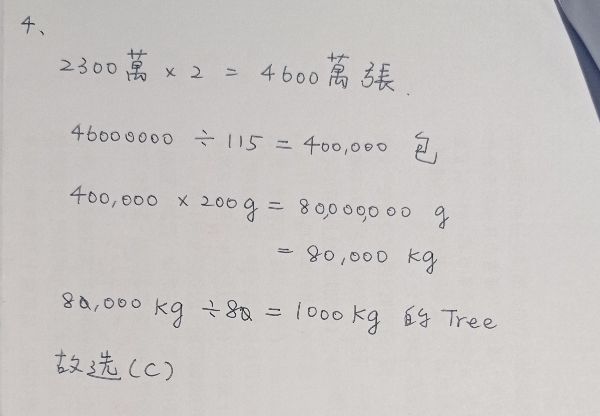 4、
2300萬 × 2 = 4600萬 張.
46000000 ÷ 115 = 400,000 包
400,000 × 200g = 80,000,000 g
= 80,000 kg
80,000 kg ÷ 80 = 1000 kg 的 Tree
故选(C)